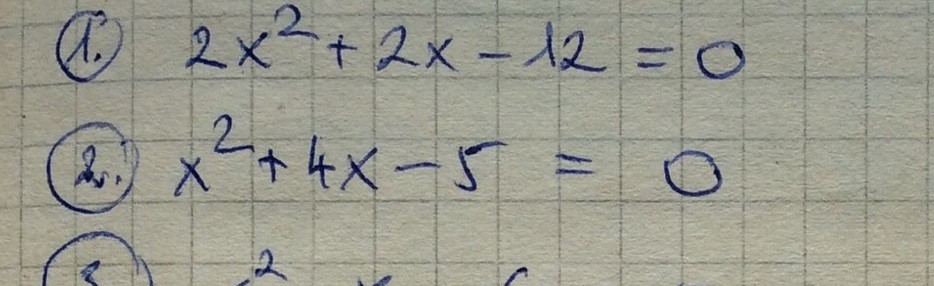 1. 2x² + 2x - 12 = 0
2. x² + 4x - 5 = 0